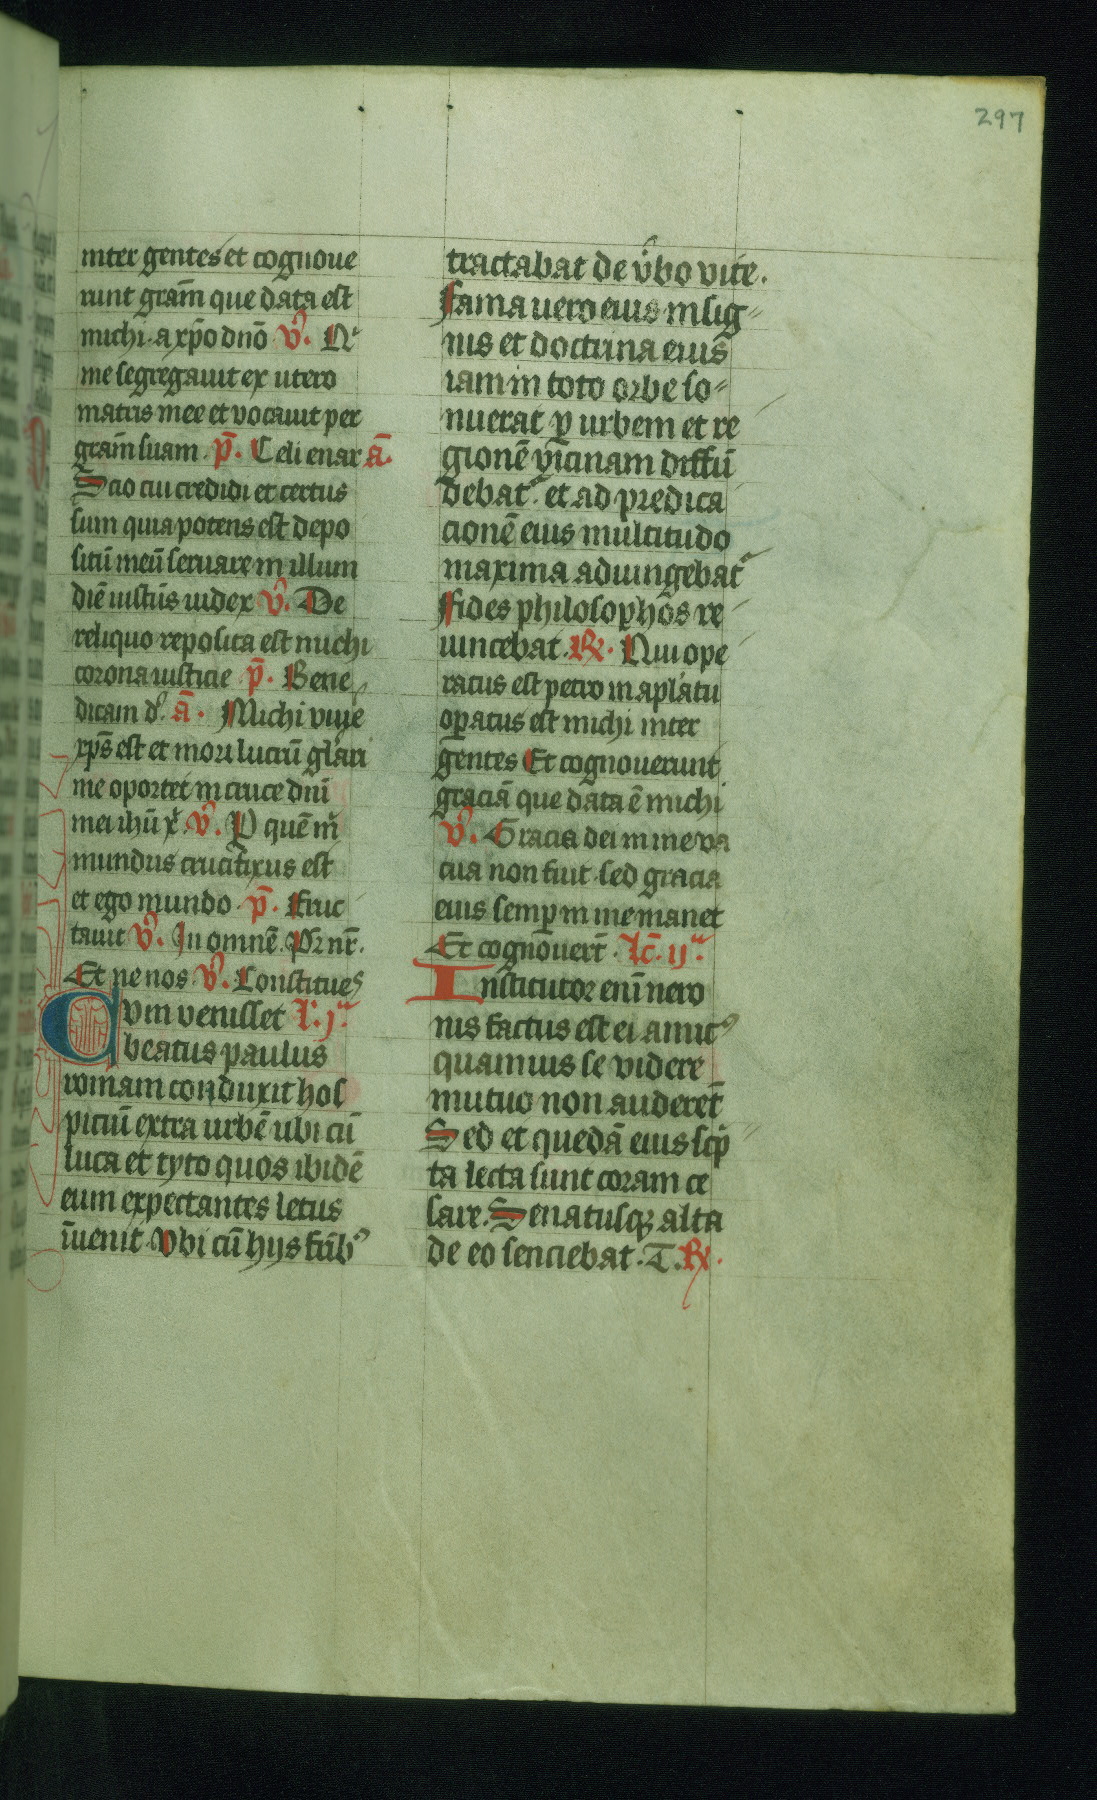 297
inter gentes et cognoue
runt gram̄ que data est
michi a xp̄o dn̄o v̉. Q
me segregauit ex utero
matris mee et vocauit per
gram̄ suam p̄. Celi enar ā.
Scio cui credidi et certus
sum quia potens est depo
sitū meū seruare in illum
diē iustus iudex v̉. De
reliquo reposita est michi
corona iusticie p̄. Bene
dicam d° ā. Michi viu͛e
xp̄s est et mori lucrū gl̄ari
me oportet in cruce dn̄i
mei ihū x̄ v̉. P quē m̉
mundus crucifixus est
et ego mundo p̄. Eruc
tauit v̉. In omnē Pr̄ nr̄.
Et ne nos v̉. Constitues
Cvm venisset l'. j ͣ
beatus paulus
romam conduxit hos
piciū extra urbē ubi cū
luca et tyto quos ibidē
eum expectantes letus
īuenit Vbi cū hys frīb⁹
tractabat de v̉bo vite.
Fama uero eius insig-
nis et doctrina eius
iam in toto orbe so-
nuerat ꝑ urbem et re
gionē vicinam diffū
debat͛ et ad predica
cionē eius multitudo
maxima adiungebat͛
Fides philosophos re
uincebat. ℟. Qui ope
ratus est petro in aplatu
oꝑatus est michi inter
gentes Et cognouerunt
graciā que data ē michi
v̉. Gracia dei in me va
cua non fuit sed gracia
eius semꝑ in me manet
Et cognouert̄. Lc̄. ij ͣ.
Institutor enī nero
nis factus est ei amic⁹
quamuis se videre
mutuo non auderet̄
Sed et quedā eius sc̉p
ta lecta sunt coram ce
sare. Senatusqꝫ alta
de eo senciebat. T. ℟.